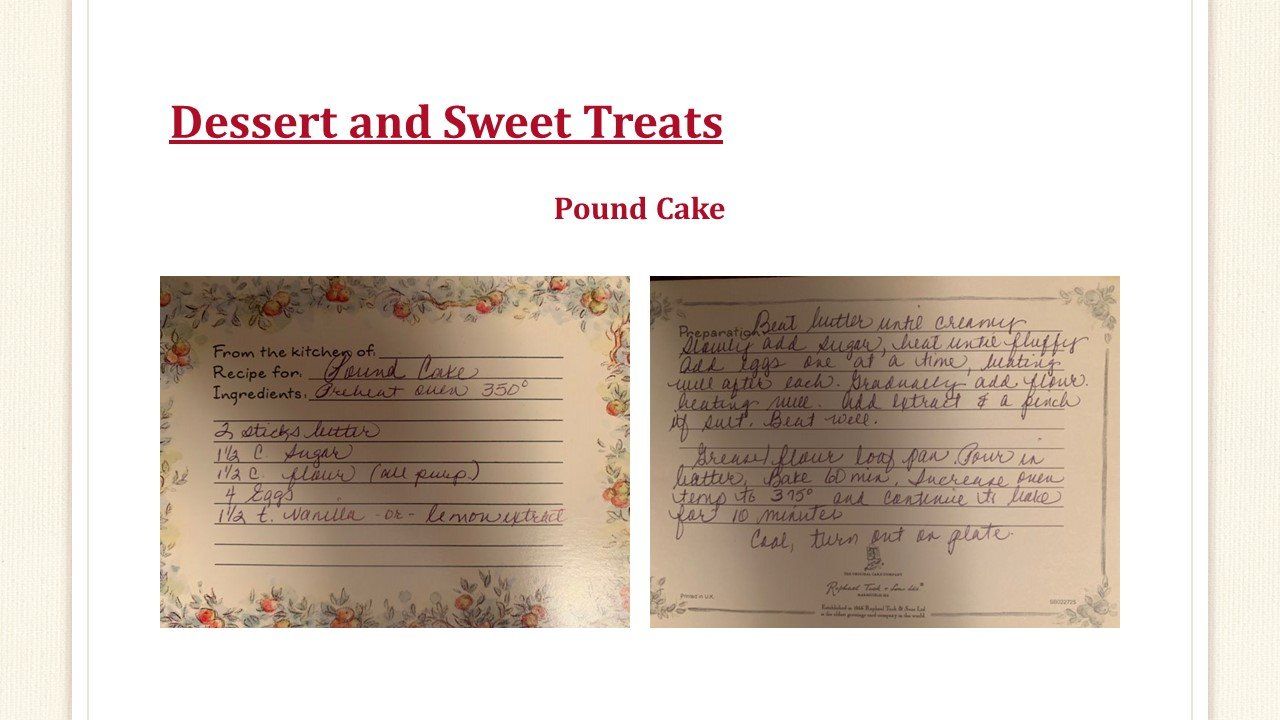 Dessert and Sweet Treats
Pound Cake
From the kitchen of:
Recipe for: Pound Cake
Ingredients: Preheat oven 350°
2 sticks butter
1 1/2 C. Sugar
1 1/2 C. flour (all purp.)
4 Eggs
1 1/2 t. Vanilla -or- lemon extract
Preparation Beat butter until creamy
Slowly add sugar, beat until fluffy
Add eggs one at a time, beating
well after each. Gradually add flour.
beating well. Add extract & a pinch
of salt. Beat well.
Grease/flour loaf pan. Pour in
batter, Bake 60 min, Increase oven
temp to 375° and continue to bake
for 10 minutes
Cool, turn out on plate.
THE ORIGINAL CARD COMPANY
Raphael Tuck & Son Ltd
Printed in U.K.
SB022725
Established in 1866 Raphael Tuck & Sons Ltd
is the oldest greetings card company in the world.